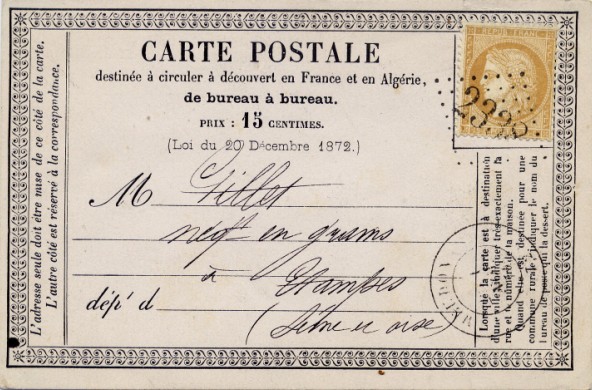 CARTE POSTALE
destinée à circuler à découvert en France et en Algérie,
de bureau à bureau.
PRIX : 15 CENTIMES.
(Loi du 20 Décembre 1872.)
M Gillet
négt en grains
à Etampes
dépt d
(Seine et oise)
L'adresse seule doit être mise de ce côté de la carte.
L'autre côté est réservé à la correspondance.
Lorsque la carte est à destination
d'une ville indiquer très-exactement la
rue et le numéro de la maison.
Quand elle est destinée pour une
commune rurale indiquer le nom du
bureau de poste qui la dessert.
REPUB FRANC
MEUDON